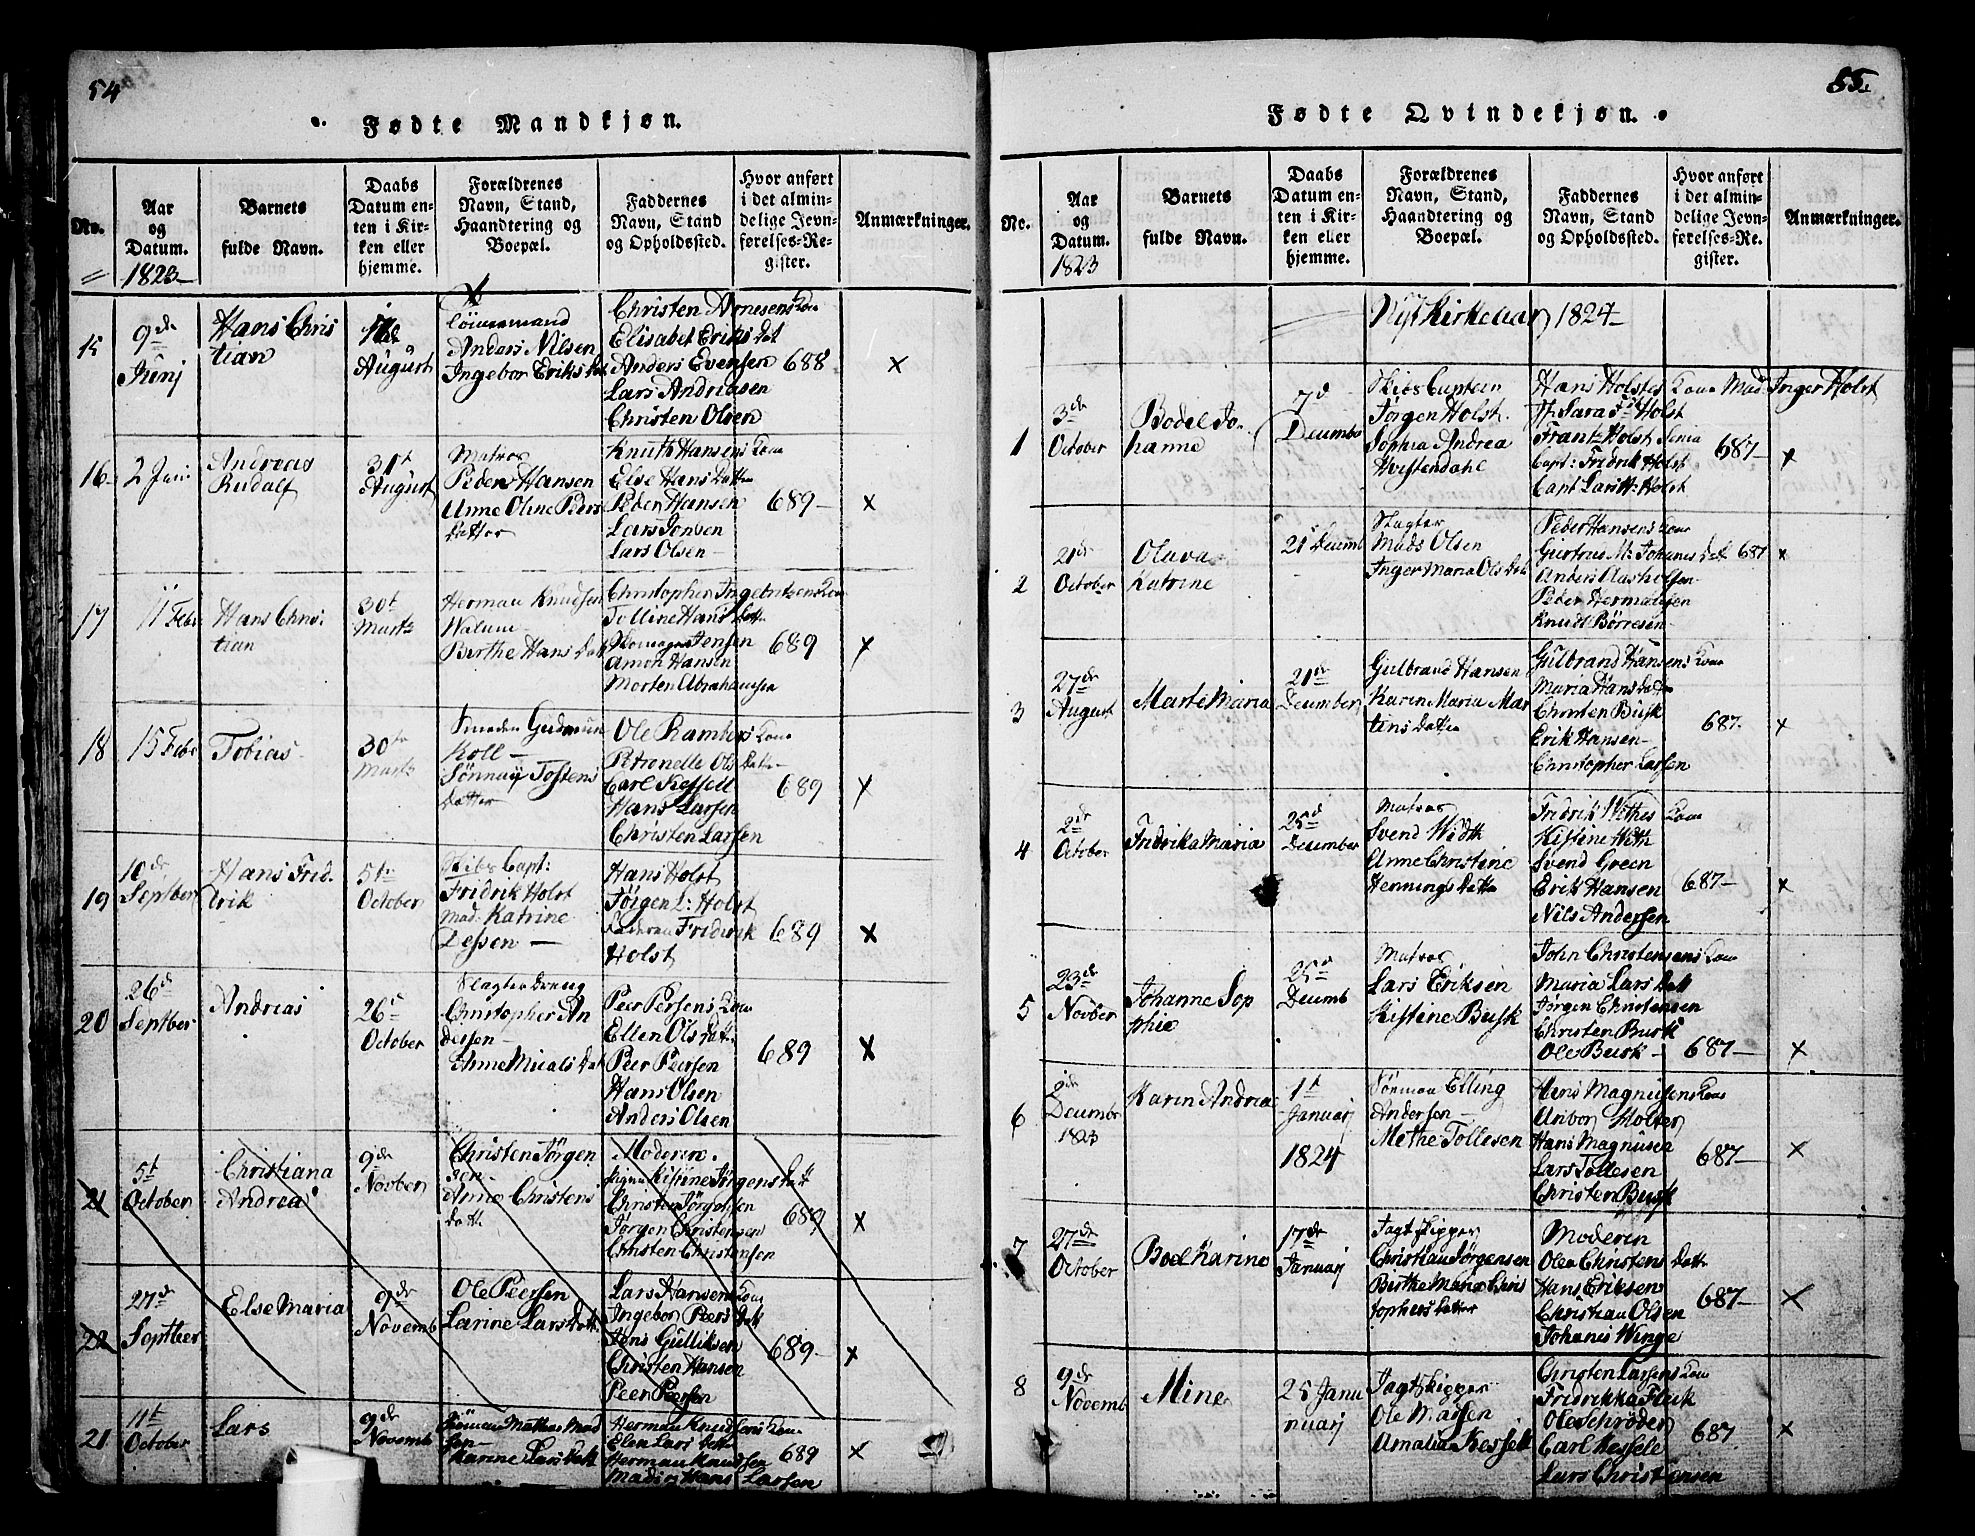 54
Fødte Mandkjøn.
No.
Aar og Datum.
1823
Barnets fulde Navn.
Daabs Datum enten i Kirken eller hjemme.
Forældrenes Navn, Stand, Haandtering og Boepæl.
Faddernes Navn, Stand og Opholdssted.
Hvor anført i det almindelige Jevnførelses-Register.
Anmærkninger.
15
9de
Junj
Hans Chris
tian
August
Anders Nilsen
Ingebor Eriks dat
Christen Arnesens Kone
Elisabet Eriks Dat
Anders Evensen
Lars Andriasen
Christen Olsen
688
x
16
2 Juni
Andreas
Rudalf
31t
August
Matros
Peder Hansen
Anne Oline Peders
datter
Knuth Hansens Kone
Else Hans Datter
Peder Hansen
Lars Jonsen
Lars Olsen
689
x
17
11 Febr
Hans Chris
tian
30t
Marts
Herman Knudsen
Walum
Birthe Hans Dat
Christopher Ingebritsens Kone
Tolline Hans Datter
Jensen
Amon Hansen
Morten Abrahamsen
689
x
18
15 Febr
Tobias
30te
Marts
Koll
Tostens
datter
Ole Rambers Kone
Petronelle Ols Datter
Carl Kessell
Hans Larsen
Christen Larsen
689
x
19
10de
Septber
Hans Frid
erik
5te
October
Skibs Capt:
Fridrik Holst
Mad. Katrine
Dessen
Hans Holst
Jørgen L: Holst
Friderik
Holst
689
x
20
26de
Septber
Andreas
26t
October
Slagterdreng
Christopher An
dersen
Anne Micals Dat
Peer Persens Kone
Ellen Ols Datt
Peer Peersen
Hans Olsen
Anders Olsen
689
x
21
5t
October
Christiana
Andrea
9de
Novber
Christen Jørgen
sen
Anne Christens
datt
Moderen
Kistine Jørgens Datt
Christen Jørgensen
Jørgen Christensen
Christen Christensen
689
x
22
27de
Septber
Else Maria
9de
Novemb
Ole Peersen
Larine Lars Datt
Lars Hansens Kone
Ingebor Peers Datt
Jens Gulliksen
Christen Hansen
Peer Peersen
689
x
21
11t
October
Lars
9de
Novemb
Mathis Mad
sen
Karine Lars Datt
Herman Knudsens Kone
Elen Lars Datter
Herman Knudsen
Hans Larsen
689
x
55.
Fødte Qvindekjøn.
No.
Aar og Datum.
1823
Barnets fulde Navn.
Daabs Datum enten i Kirken eller hjemme.
Forældrenes Navn, Stand, Haandtering og Boepæl.
Faddernes Navn, Stand og Opholdssted.
Hvor anført i det almindelige Jevnførelses-Register.
Anmærkninger.
Nyt Kirkeaar 1824
1
3de
October
Bodel Jo
hanne
7d
Decembr
Skibs Captein
Jørgen Holst
Sophia Andrea
Hvistendahl
Hans Holstes Kone Mad Inger Holst
Jf. Sara Holst
Frantz Holst Senia
Capt: Fridrik Holst
Capt Lars H: Holst
687
x
2
21de
October
Olava
Katrine
21 Decemb
Slagter
Mads Olsen
Inger Maria Ols Dat
Peder Hansens Kone
Giertrud M: Johanes Dat
Anders Aasholsen
Peder Hermansen
Knudt Børresen
687
x
3
27de
August
Marte Maria
21de
December
Gulbrand Hansen
Karen Maria Mar
tens Datter
Gulbrand Hansens Kone
Maria Hans Datter
Christen Busk
Erik Hansen
Christopher Larsen
687
x
4
2de
October
Fridrika Maria
25d
December
Matros
Svend Width
Anne Christine
Hennings Datter
Fridrik Withes Kone
Kistine With
Svend Green
Erik Hansen
Nils Andersen
687
x
5
23de
Novber
Johanne Sop
phie
25d
Decemb
Matros
Lars Eriksen
Kistine Busk
John Christensens Kone
Maria Lars Datt
Jørgen Christensen
Christen Busk
Ole Busk
687
x
6
2de
Decembr
1823
Karen Andrea
1t
Januarj
1824
Søman Elling
Andersen
Methe Tollesen
Hans Magnusens Kone
Anbor Molter
Hans Magnusen
Lars Tollesen
Christen Busk
687
x
7
27de
October
Boel Karine
17de
Januarj
Jagtskipper
Christian Jørgensen
Birthe Maria Chris
tophers Datter
Moderen
Olea Christens Datter
Hans Eriksen
Christian Olsen
Johanis Winge
687
x
8
9de
Novemb
Mine
25 Janu
nuarj
Jagtskipper
Ole Madsen
Amalia Kessell
Christen Larsens Kone
Fridrikka Fluk
Ole Schrøder
Carl Kessele
Lars Christensen
687
x